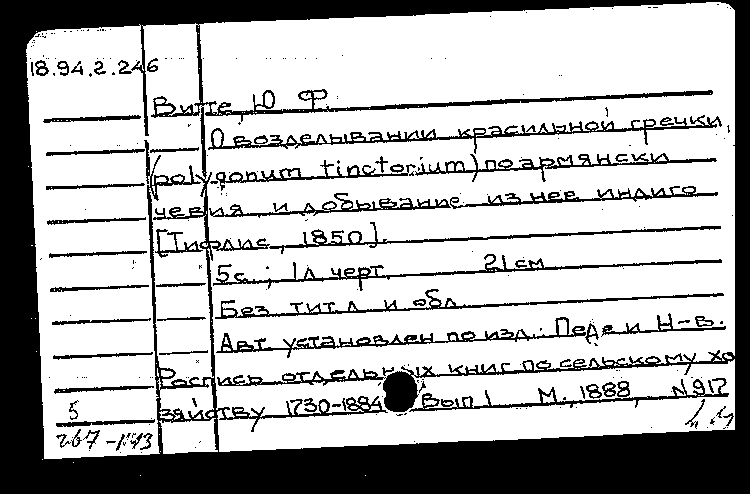 18.94.2.246
Витте, Ю Ф.
О возделывании красильной гречки,
(polygonum tinctorium) по армянски
чевия и добывание из нев индиго
[Тифлис, 1850].
5с.; 1л. черт. 21 см
Без тит. л и обл
Авт. установлен по изд.: Педе и Н-в.
Роспись отдельных книг по сельскому хо
зяйству 1730-1884 Вып 1 М., 1888, N 917
5
267-1143